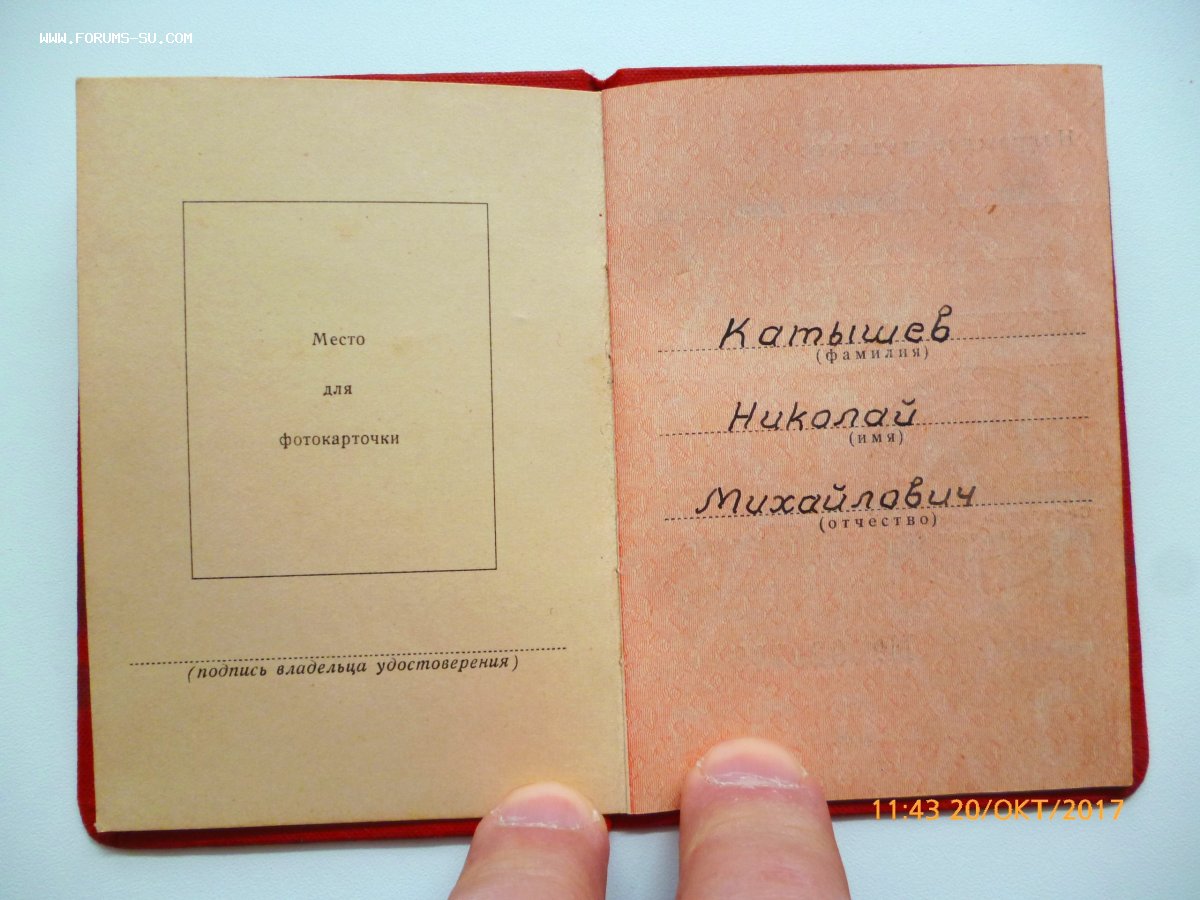 WWW.FORUMS-SU.COM
Место
для
фотокарточки
(подпись владельца удостоверения)
Катышев
(фамилия)
Николай
(имя)
Михайлович
(отчество)
11:43 20/ОКТ/2017